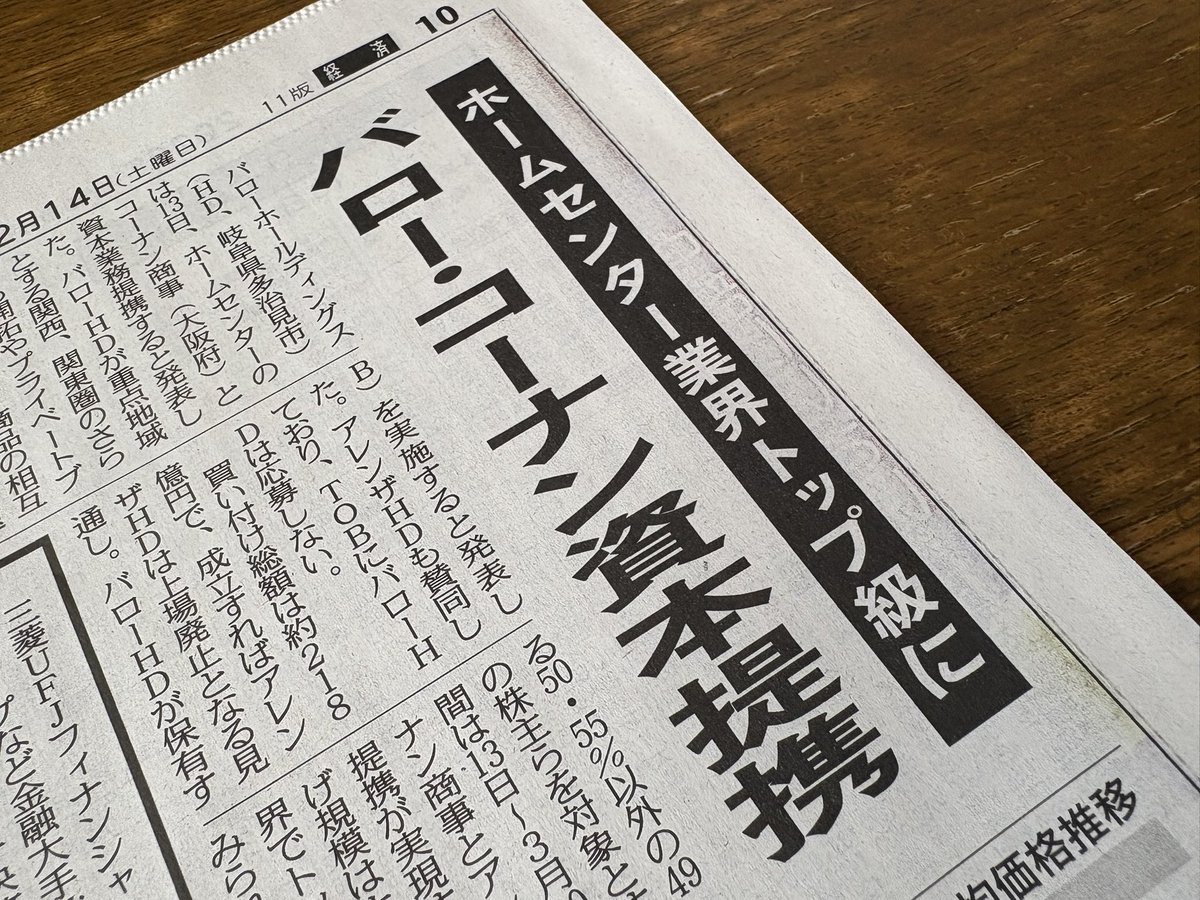 10
経済
11版
2月14日(土曜日)
ホームセンター業界トップ級に
バロー・コーナン資本提携
バローホールディングス
(HD、岐阜県多治見市)
は13日、ホームセンターの
コーナン商事(大阪府)と
資本業務提携すると発表し
た。バローHDが重点地域
とする関西、関東圏のさら
開拓やプライベートブ
商品の相互
B)を実施すると発表し
た。アレンザHDも賛同し
ており、TOBにバローH
Dは応募しない。
買い付け総額は約218
億円で、成立すればアレン
ザHDは上場廃止となる見
通し。バローHDが保有す
る50・55%以外の49
の株主らを対象と
間は13日〜3月
ナン商事とア
提携が実現
げ規模は
界でト
みら
三菱UFJフィナンシャ
プなど金融大手
均価格推移